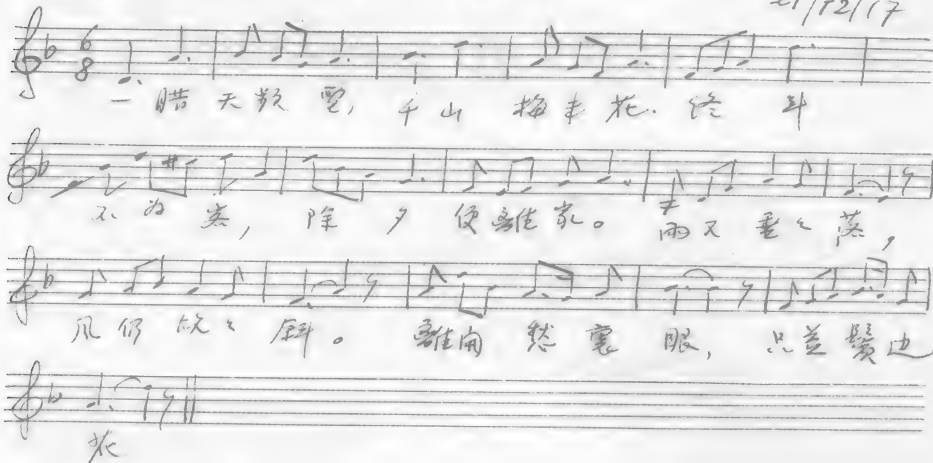 21/12/17
6
8
一腊天频雪,千山梅未花.终年
不为客,除夕便離家。雨又垂々落,
风仍吹々斜。難開愁裏眼,只並鬓边
花